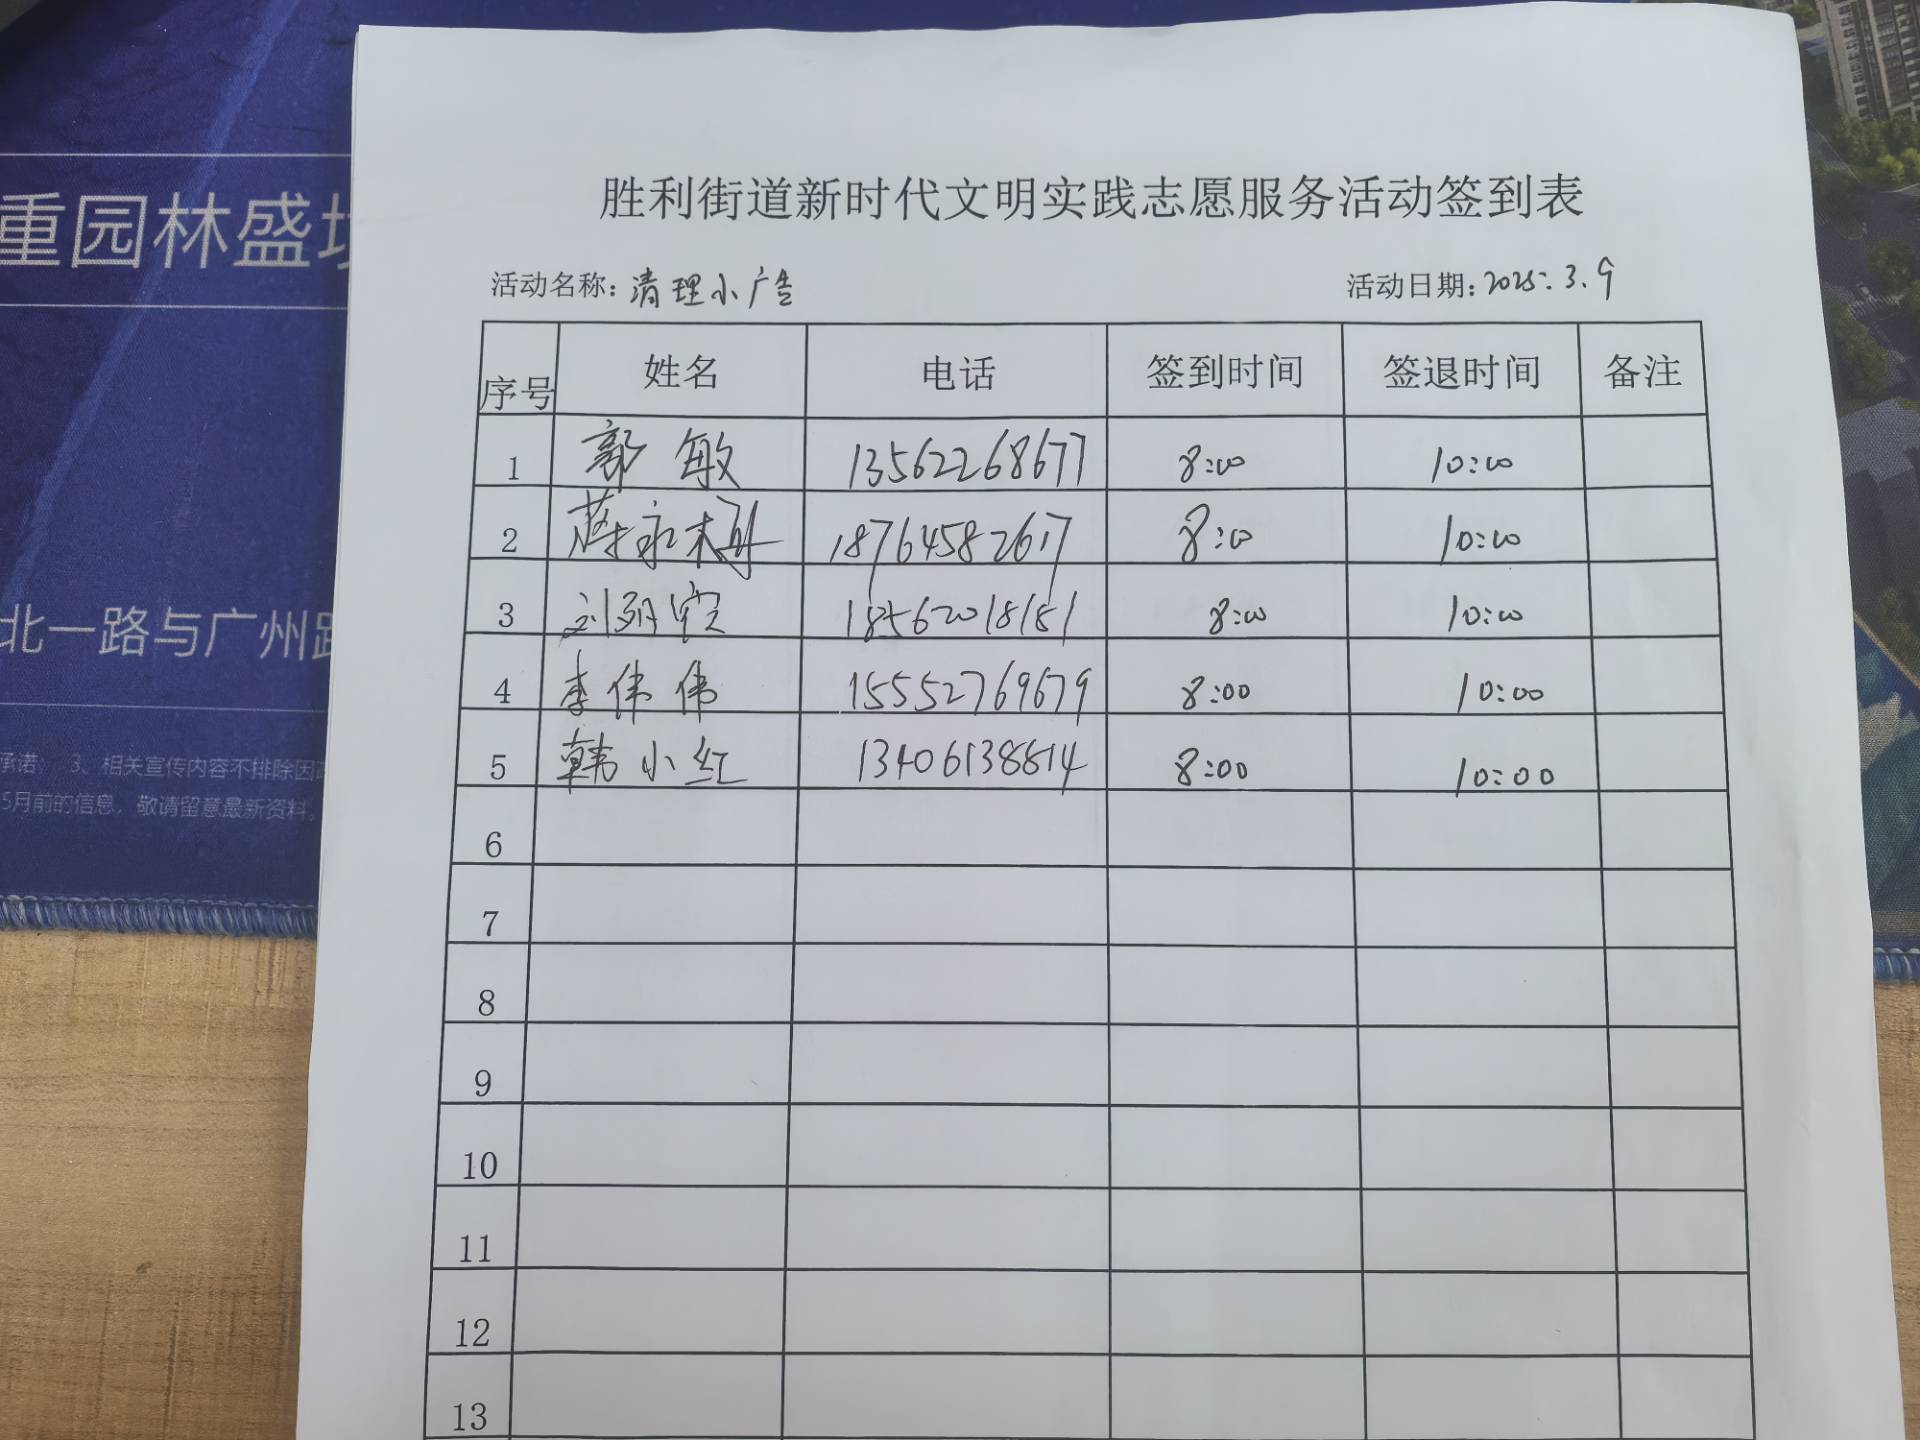 重园林盛
北一路与广州路
承诺 3、相关宣传内容不排除因
5月前的信息，敬请留意最新资料。
胜利街道新时代文明实践志愿服务活动签到表
活动名称：清理小广告 活动日期：2025.3.9
序号 姓名 电话 签到时间 签退时间 备注
1 郭敏 13562268677 8:00 10:00
2 永 18764582617 8:00 10:00
3 刘 18562018181 8:00 10:00
4 李伟伟 15552769679 8:00 10:00
5 韩小红 13406138814 8:00 10:00
6
7
8
9
10
11
12
13